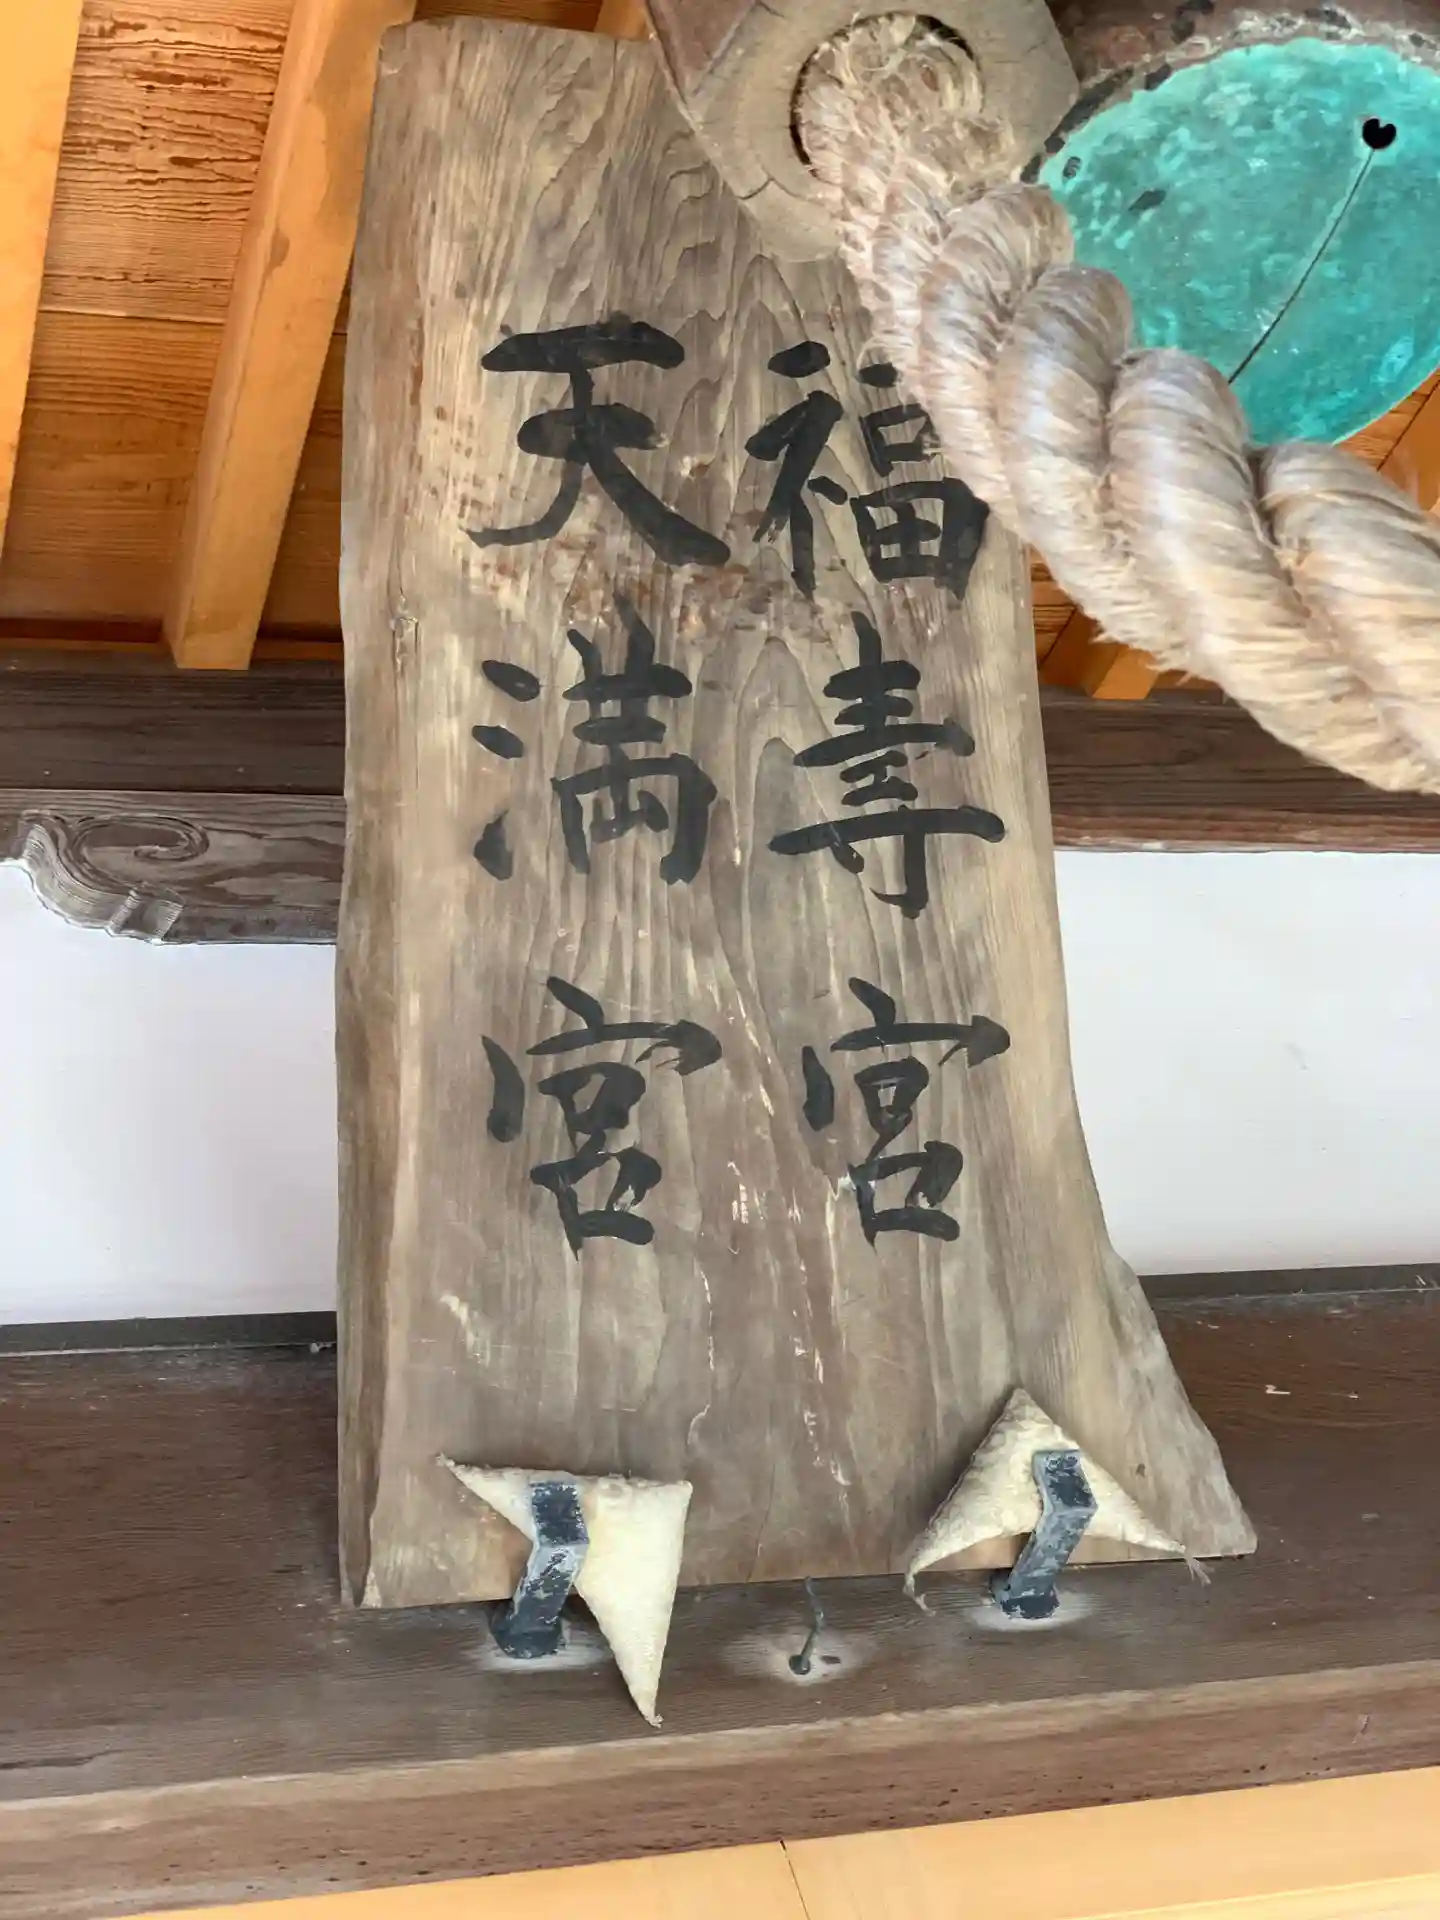 福壽宮
天満宮